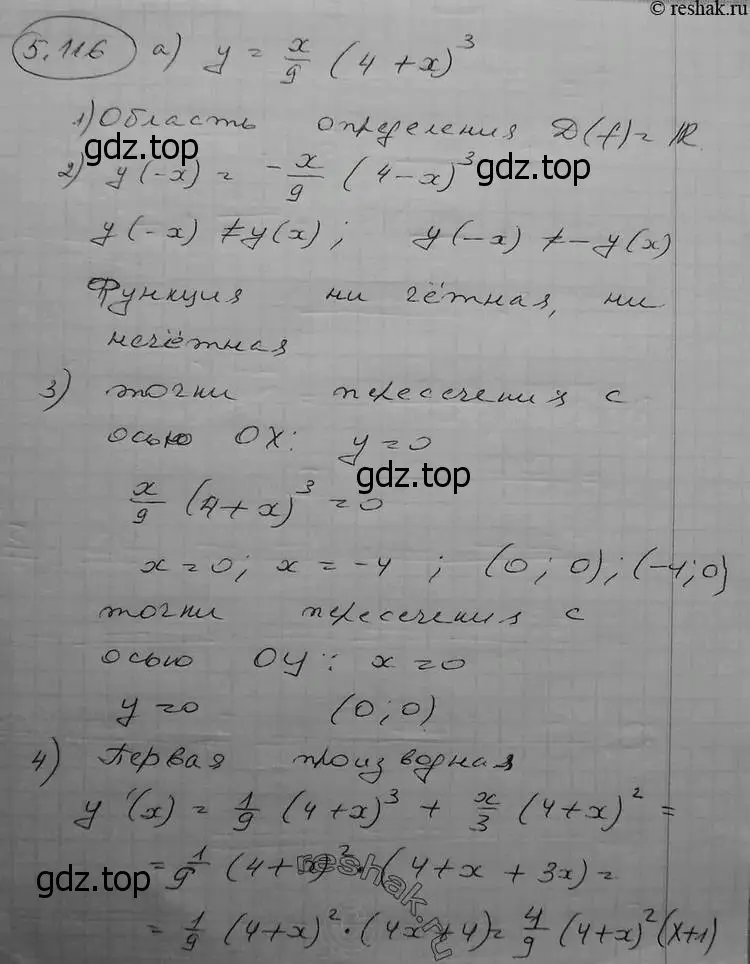 © reshak.ru
5.116 а) y = x/9 (4 + x)^3
1) Область определения D(f) = R
gdz.top
2) y(-x) = -x/9 (4 - x)^3
gdz.top
y(-x) ≠ y(x); y(-x) ≠ -y(x)
Функция ни чётная, ни
нечётная
3) точки пересечения с
осью OX: y = 0
gdz.top
x/9 (4 + x)^3 = 0
x = 0; x = -4 ; (0; 0); (-4; 0)
точки пересечения с
осью OY: x = 0
y = 0 (0; 0)
4) Первая производная
y'(x) = 1/9 (4 + x)^3 + x/3 (4 + x)^2 =
= 1/9 (4 + x)^2 · (4 + x + 3x) =
gdz.top
reshak.ru
= 1/9 (4 + x)^2 · (4x + 4) = 4/9 (4 + x)^2 (x + 1)